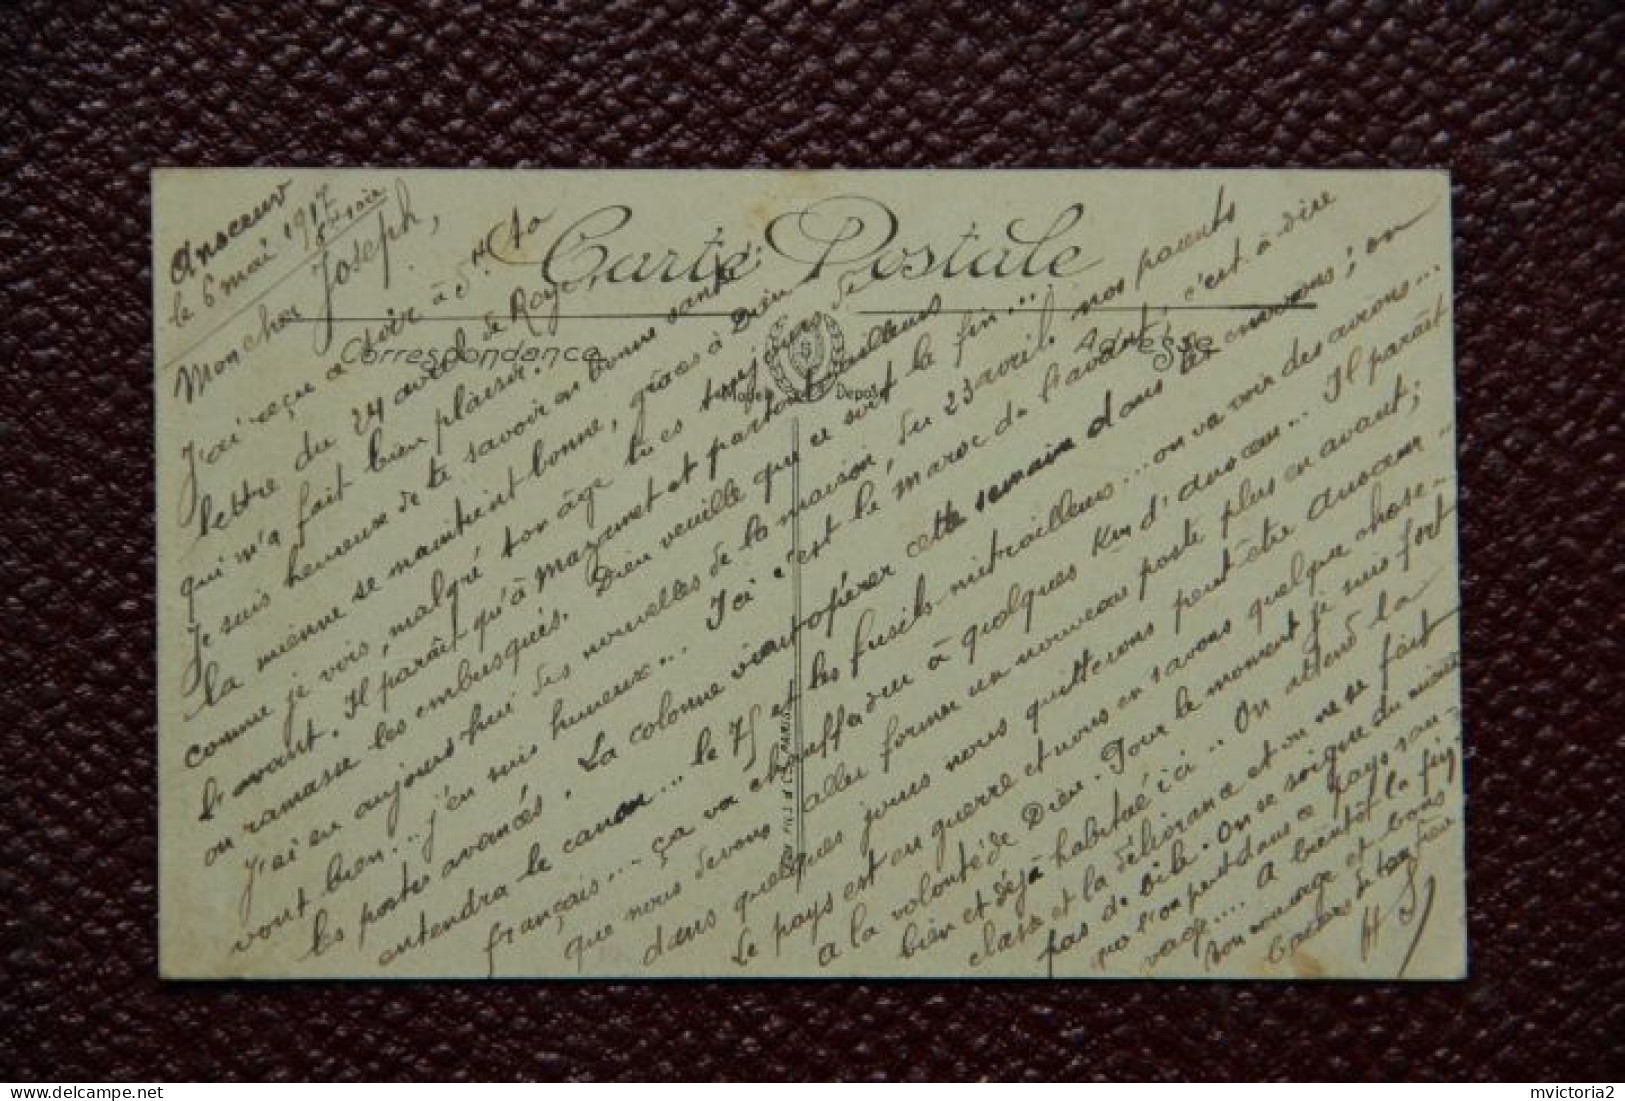 Anoceur
le 6 mai 1917
Mon cher Joseph,
Carte Postale
Correspondance
Adresse
Modèle Déposé
J'ai reçu à soir à 5h 10
lettre du 24 avril de Roye
qui m'a fait bien plaisir.
Je suis heureux de te savoir en bonne santé
la mienne se maintient bonne, grâce à Dieu
comme je vois, malgré ton âge tu es toujours de
l'avant. Il paraît qu'à Mazamet et partout ailleurs
on ramasse les embusqués. Dieu veuille que ce soit la fin...
J'ai eu aujourd'hui des nouvelles de la maison, du 23 avril, nos parents
vont bien... j'en suis heureux... Ici c'est le Maroc de l'avant, c'est à dire
les postes avancés. La colonne vient opérer cette semaine dans les environs; on
entendra le canon... le 75 et les fusils mitrailleurs... on va voir des avions...
français.... ça va chauffer à quelques Km d'Anoceur... Il paraît
que nous devons aller former un nouveau poste plus en avant;
dans quelques jours nous quitterons peut-être Anoceur..
Le pays est en guerre et nous en savons quelque chose..
A la volonté de Dieu. Pour le moment je suis fort
bien et déjà habitué ici.. On attend la
classe et la délivrance et on ne se fait
pas de bile. On se soigne du mieux
que l'on peut dans ce pays sau-
vage.... A bientôt la fin,
bon courage et bons
baisers de ton frère
H